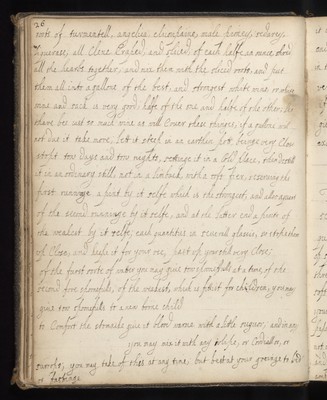 26
roots of turmentell, angelica elicompane, male peoney, zedoary,
Licoras, all Clene Scraped, and sliced, of each halfe an ounce, shred
all the hearbs together, and mix them with the sliced roots, and put
them all into a gallond of the best, and strongest white wine, or
wine and sack is very good, halfe of the one and halfe of the other,
must be soe much wine as will Cover these things, if a gallond will
not doe it take more, lett it steep in an earthen pott, being very Close
stopt two Days and two nights, in a Cold place, then distill
it in an ordinary still, not in a limbeck, with a soft fier, reserving the
first running a pint by it selfe which is the strongest, and also a quart
of the second running by it selfe, and at the latter end a pinte of
the weakest by it selfe, each quantitie in severall glasses, so stop
up Close, and keepe it for your use,
of the first sorte of water you may give two spoonfulls at a time, of the
second five spoonfulls, of the weakest, which is fittest for children, you may
give two spoonfulls to a new borne child
to Comfort the stomake give it blood warme with a litle suger, and
you may use it with any or Cordiall, or
you may take of this at any time, but best at your goeing to bed
or fastinge